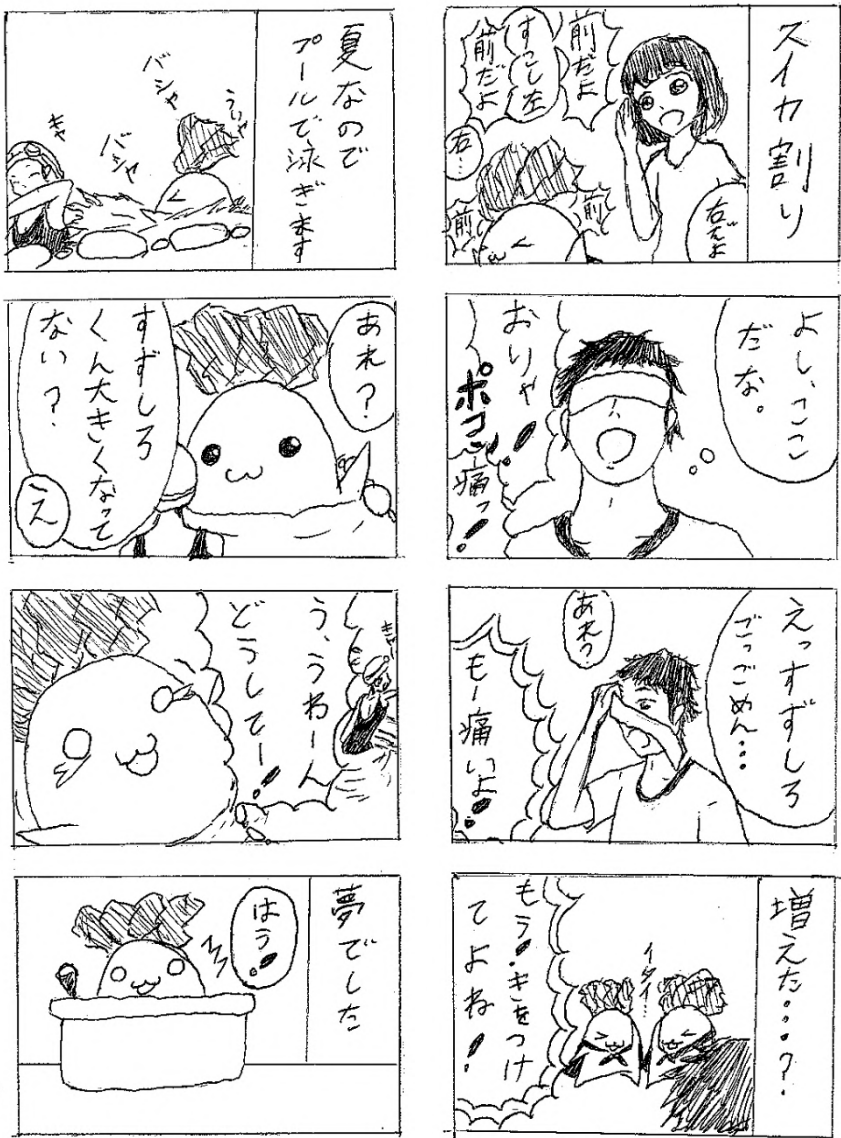 スイカ割り
右だよ
前だよ
すこし左
前だよ
右…
前
前
よし、ここ
だな。
おりゃ!
ポコッ!
痛っ!
えっすずしろ
ごっごめん…
あれ?
もー痛いよ!
増えた…?
イタイ…
もう!きをつけ
てよね!
夏なので
プールで泳ぎます
うりゃ
バシャ
バシャ
キャ
あれ?
すずしろ
くん大きくなって
ない?
え
う、うわーん
どうしてー!
夢でした
はう!